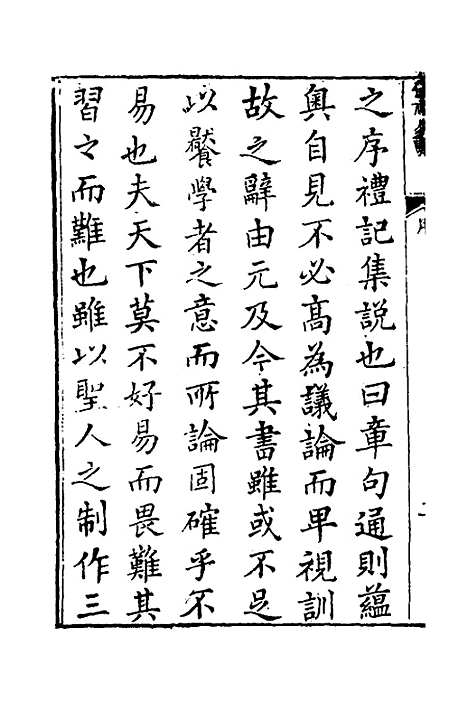 之序禮記集説也曰章句通則藴
奥自見不必髙為議論而卑視訓
故之辭由元及今其書雖或不足
以饜學者之意而所論固確乎不
易也夫天下莫不好易而畏難其
習々而難也雖以聖人之制作三